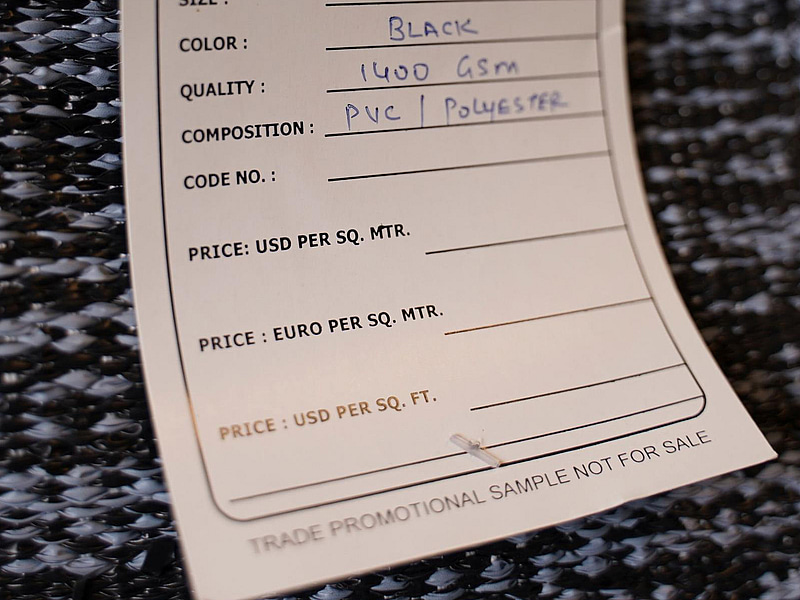 SIZE :
COLOR : BLACK
QUALITY : 1400 GSM
COMPOSITION : PVC | POLYESTER
CODE NO. :
PRICE: USD PER SQ. MTR.
PRICE : EURO PER SQ. MTR.
PRICE : USD PER SQ. FT.
TRADE PROMOTIONAL SAMPLE NOT FOR SALE